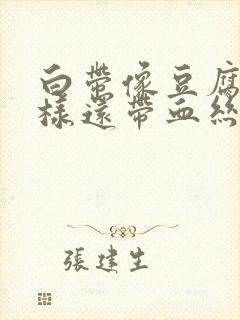 白帶像豆腐
樣還帶血絲
張建生